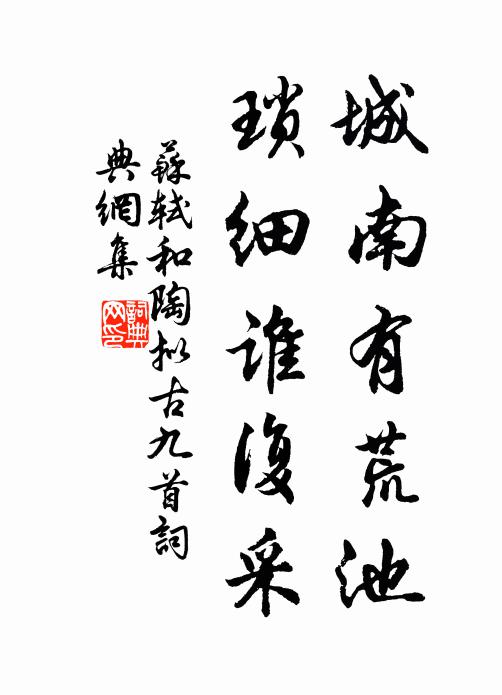 城南有荒池
瑣細誰復采
蘇軾和陶拟古九首詞
典網集
詞典
网印